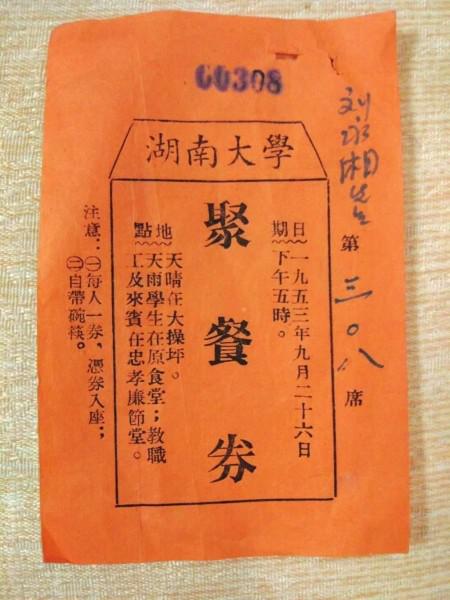 00308
湖南大學
刘 湘先生 第三〇八席
日期
一九五三年九月二十六日
下午五時。
聚餐券
地點
天晴在大操坪。
天雨學生在原食堂；教職
工及來賓在忠孝廉節堂。
注意：㊀每人一券，憑券入座；
㊁自帶碗筷。